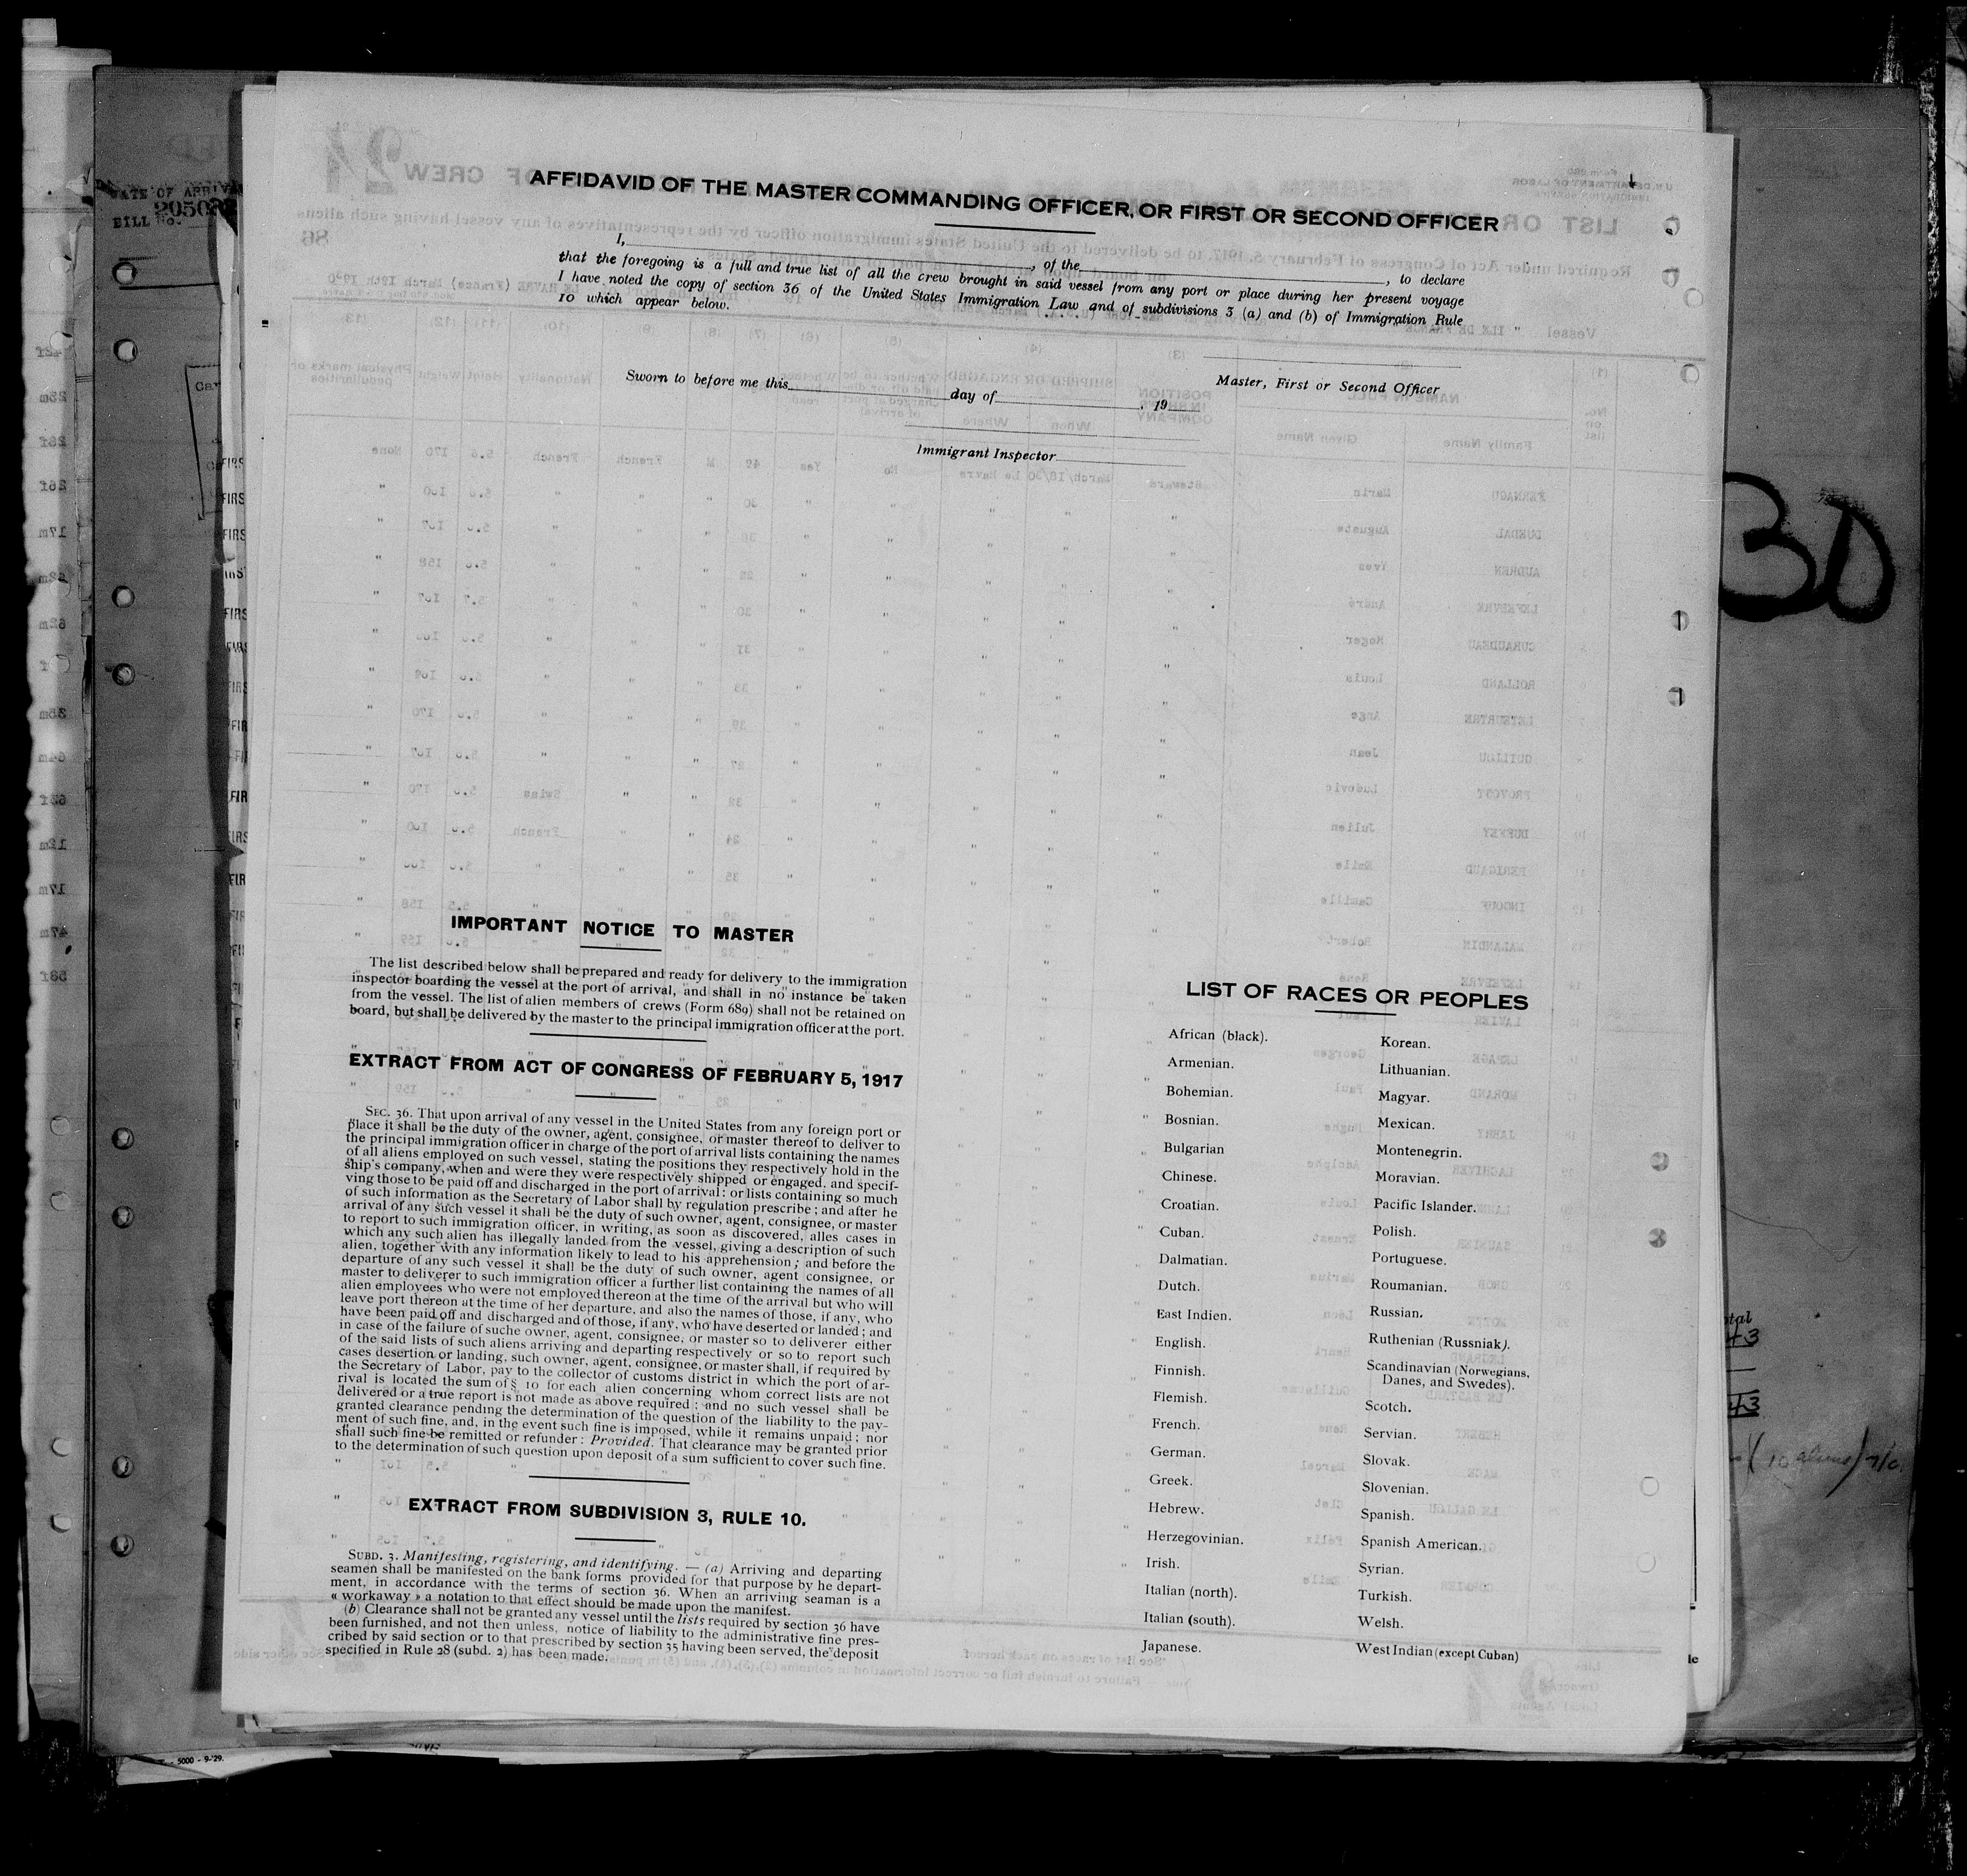 AFFIDAVID OF THE MASTER COMMANDING OFFICER, OR FIRST OR SECOND OFFICER
I, , of the , to declare
that the foregoing is a full and true list of all the crew brought in said vessel from any port or place during her present voyage
I have noted the copy of section 36 of the United States Immigration Law and of subdivisions 3 (a) and (b) of Immigration Rule
10 which appear below.
Master, First or Second Officer
Sworn to before me this day of , 19
Immigrant Inspector
IMPORTANT NOTICE TO MASTER
The list described below shall be prepared and ready for delivery to the immigration
inspector boarding the vessel at the port of arrival, and shall in no instance be taken
from the vessel. The list of alien members of crews (Form 689) shall not be retained on
board, but shall be delivered by the master to the principal immigration officer at the port.
EXTRACT FROM ACT OF CONGRESS OF FEBRUARY 5, 1917
SEC. 36. That upon arrival of any vessel in the United States from any foreign port or
place it shall be the duty of the owner, agent, consignee, or master thereof to deliver to
the principal immigration officer in charge of the port of arrival lists containing the names
of all aliens employed on such vessel, stating the positions they respectively hold in the
ship's company, when and were they were respectively shipped or engaged, and specif-
ying those to be paid off and discharged in the port of arrival: or lists containing so much
of such information as the Secretary of Labor shall by regulation prescribe; and after he
arrival of any such vessel it shall be the duty of such owner, agent, consignee, or master
to report to such immigration officer, in writing, as soon as discovered, alles cases in
which any such alien has illegally landed from the vessel, giving a description of such
alien, together with any information likely to lead to his apprehension; and before the
departure of any such vessel it shall be the duty of such owner, agent consignee, or
master to deliverer to such immigration officer a further list containing the names of all
alien employees who were not employed thereon at the time of the arrival but who will
leave port thereon at the time of her departure, and also the names of those, if any, who
have been paid off and discharged and of those, if any, who have deserted or landed; and
in case of the failure of suche owner, agent, consignee, or master so to deliverer either
of the said lists of such aliens arriving and departing respectively or so to report such
cases desertion or landing, such owner, agent, consignee, or master shall, if required by
the Secretary of Labor, pay to the collector of customs district in which the port of ar-
rival is located the sum of § 10 for each alien concerning whom correct lists are not
delivered or a true report is not made as above required; and no such vessel shall be
granted clearance pending the determination of the question of the liability to the pay-
ment of such fine, and, in the event such fine is imposed, while it remains unpaid; nor
shall such fine be remitted or refunder: Provided. That clearance may be granted prior
to the determination of such question upon deposit of a sum sufficient to cover such fine.
EXTRACT FROM SUBDIVISION 3, RULE 10.
SUBD. 3. Manifesting, registering, and identifying. — (a) Arriving and departing
seamen shall be manifested on the bank forms provided for that purpose by he depart-
ment, in accordance with the terms of section 36. When an arriving seaman is a
« workaway » a notation to that effect should be made upon the manifest.
(b) Clearance shall not be granted any vessel until the lists required by section 36 have
been furnished, and not then unless, notice of liability to the administrative fine pres-
cribed by said section or to that prescribed by section 35 having been served, the deposit
specified in Rule 28 (subd. 2) has been made.
LIST OF RACES OR PEOPLES
African (black).
Armenian.
Bohemian.
Bosnian.
Bulgarian
Chinese.
Croatian.
Cuban.
Dalmatian.
Dutch.
East Indien.
English.
Finnish.
Flemish.
French.
German.
Greek.
Hebrew.
Herzegovinian.
Irish.
Italian (north).
Italian (south).
Japanese.
Korean.
Lithuanian.
Magyar.
Mexican.
Montenegrin.
Moravian.
Pacific Islander.
Polish.
Portuguese.
Roumanian.
Russian.
Ruthenian (Russniak).
Scandinavian (Norwegians,
Danes, and Swedes).
Scotch.
Servian.
Slovak.
Slovenian.
Spanish.
Spanish American.
Syrian.
Turkish.
Welsh.
West Indian (except Cuban)
BILL No.
30
5000 - 9-'29.